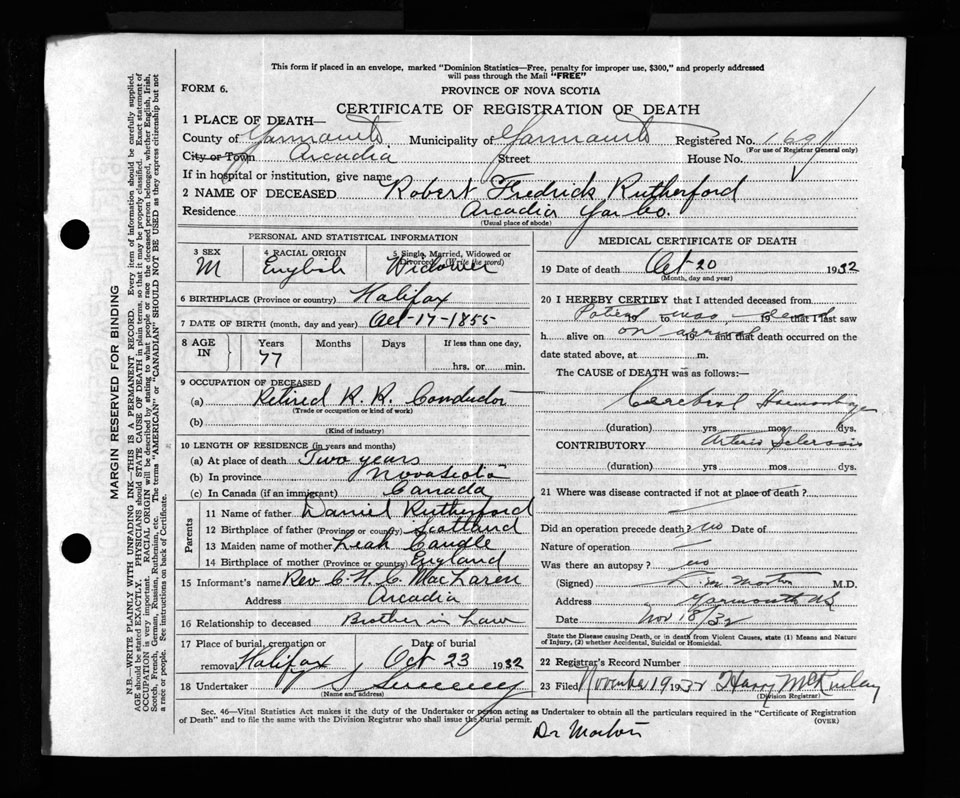 This form if placed in an envelope, marked "Dominion Statistics—Free, penalty for improper use, $300," and properly addressed
will pass through the Mail "FREE"
FORM 6.
PROVINCE OF NOVA SCOTIA
CERTIFICATE OF REGISTRATION OF DEATH
1 PLACE OF DEATH—
County of Yarmouth Municipality of Yarmouth Registered No. 1691
(For use of Registrar General only)
City or Town Arcadia Street House No.
If in hospital or institution, give name
2 NAME OF DECEASED Robert Fredrick Rutherford
Residence Arcadia Yar Co.
(Usual place of abode)
PERSONAL AND STATISTICAL INFORMATION
3 SEX 4 RACIAL ORIGIN 5 Single, Married, Widowed or Divorced (Write the word)
M English Widower
6 BIRTHPLACE (Province or country) Halifax
7 DATE OF BIRTH (month, day and year) Oct-17-1855
8 AGE IN Years Months Days If less than one day,
77 hrs. or min.
9 OCCUPATION OF DECEASED
(a) Retired R. R. Conductor
(Trade or occupation or kind of work)
(b)
(Kind of industry)
10 LENGTH OF RESIDENCE (in years and months)
(a) At place of death Two years
(b) In province Nova Scotia
(c) In Canada (if an immigrant) Canada
Parents
11 Name of father Daniel Rutherford
12 Birthplace of father (Province or country) Scotland
13 Maiden name of mother Leah Caudle
14 Birthplace of mother (Province or country) England
15 Informant's name Rev C. H. C. MacLaren
Address Arcadia
16 Relationship to deceased Brother in Law
17 Place of burial, cremation or Date of burial
removal Halifax Oct 23 1932
18 Undertaker Sweeney
(Name and address)
MEDICAL CERTIFICATE OF DEATH
19 Date of death Oct-20 1932
(Month, day and year)
20 I HEREBY CERTIFY that I attended deceased from
Patient was dead 19 to 19 that I last saw
h alive on on arrival 19 and that death occurred on the
date stated above, at m.
The CAUSE of DEATH was as follows:—
Cerebral Haemorrhage
(duration) yrs mos dys.
CONTRIBUTORY Arterio Sclerosis
(duration) yrs mos dys.
21 Where was disease contracted if not at place of death?
Did an operation precede death? no Date of
Nature of operation
Was there an autopsy? no
(Signed) Morton M.D.
Address Yarmouth NS
Date Nov 18/32
State the Disease causing Death, or in death from Violent Causes, state (1) Means and Nature
of Injury, (2) whether Accidental, Suicidal or Homicidal.
22 Registrar's Record Number
23 Filed November 19 1932 Harry McKinlay
(Division Registrar)
Sec. 46—Vital Statistics Act makes it the duty of the Undertaker or person acting as Undertaker to obtain all the particulars required in the "Certificate of Registration
of Death" and to file the same with the Division Registrar who shall issue the burial permit. (OVER)
Dr Morton
MARGIN RESERVED FOR BINDING
N.B.—WRITE PLAINLY WITH UNFADING INK—THIS IS A PERMANENT RECORD. Every item of information should be carefully supplied.
AGE should be stated EXACTLY. PHYSICIANS should STATE CAUSE OF DEATH in plain terms, so that it may be properly classified. Exact statement of
OCCUPATION is very important. RACIAL ORIGIN will be described by stating to what people or race the deceased person belonged, whether English, Irish,
Scotch, French, German, Russian, Ruthenian, etc. The terms "AMERICAN" or "CANADIAN" SHOULD NOT BE USED as they express citizenship but not
a race or people. See instructions on back of Certificate.